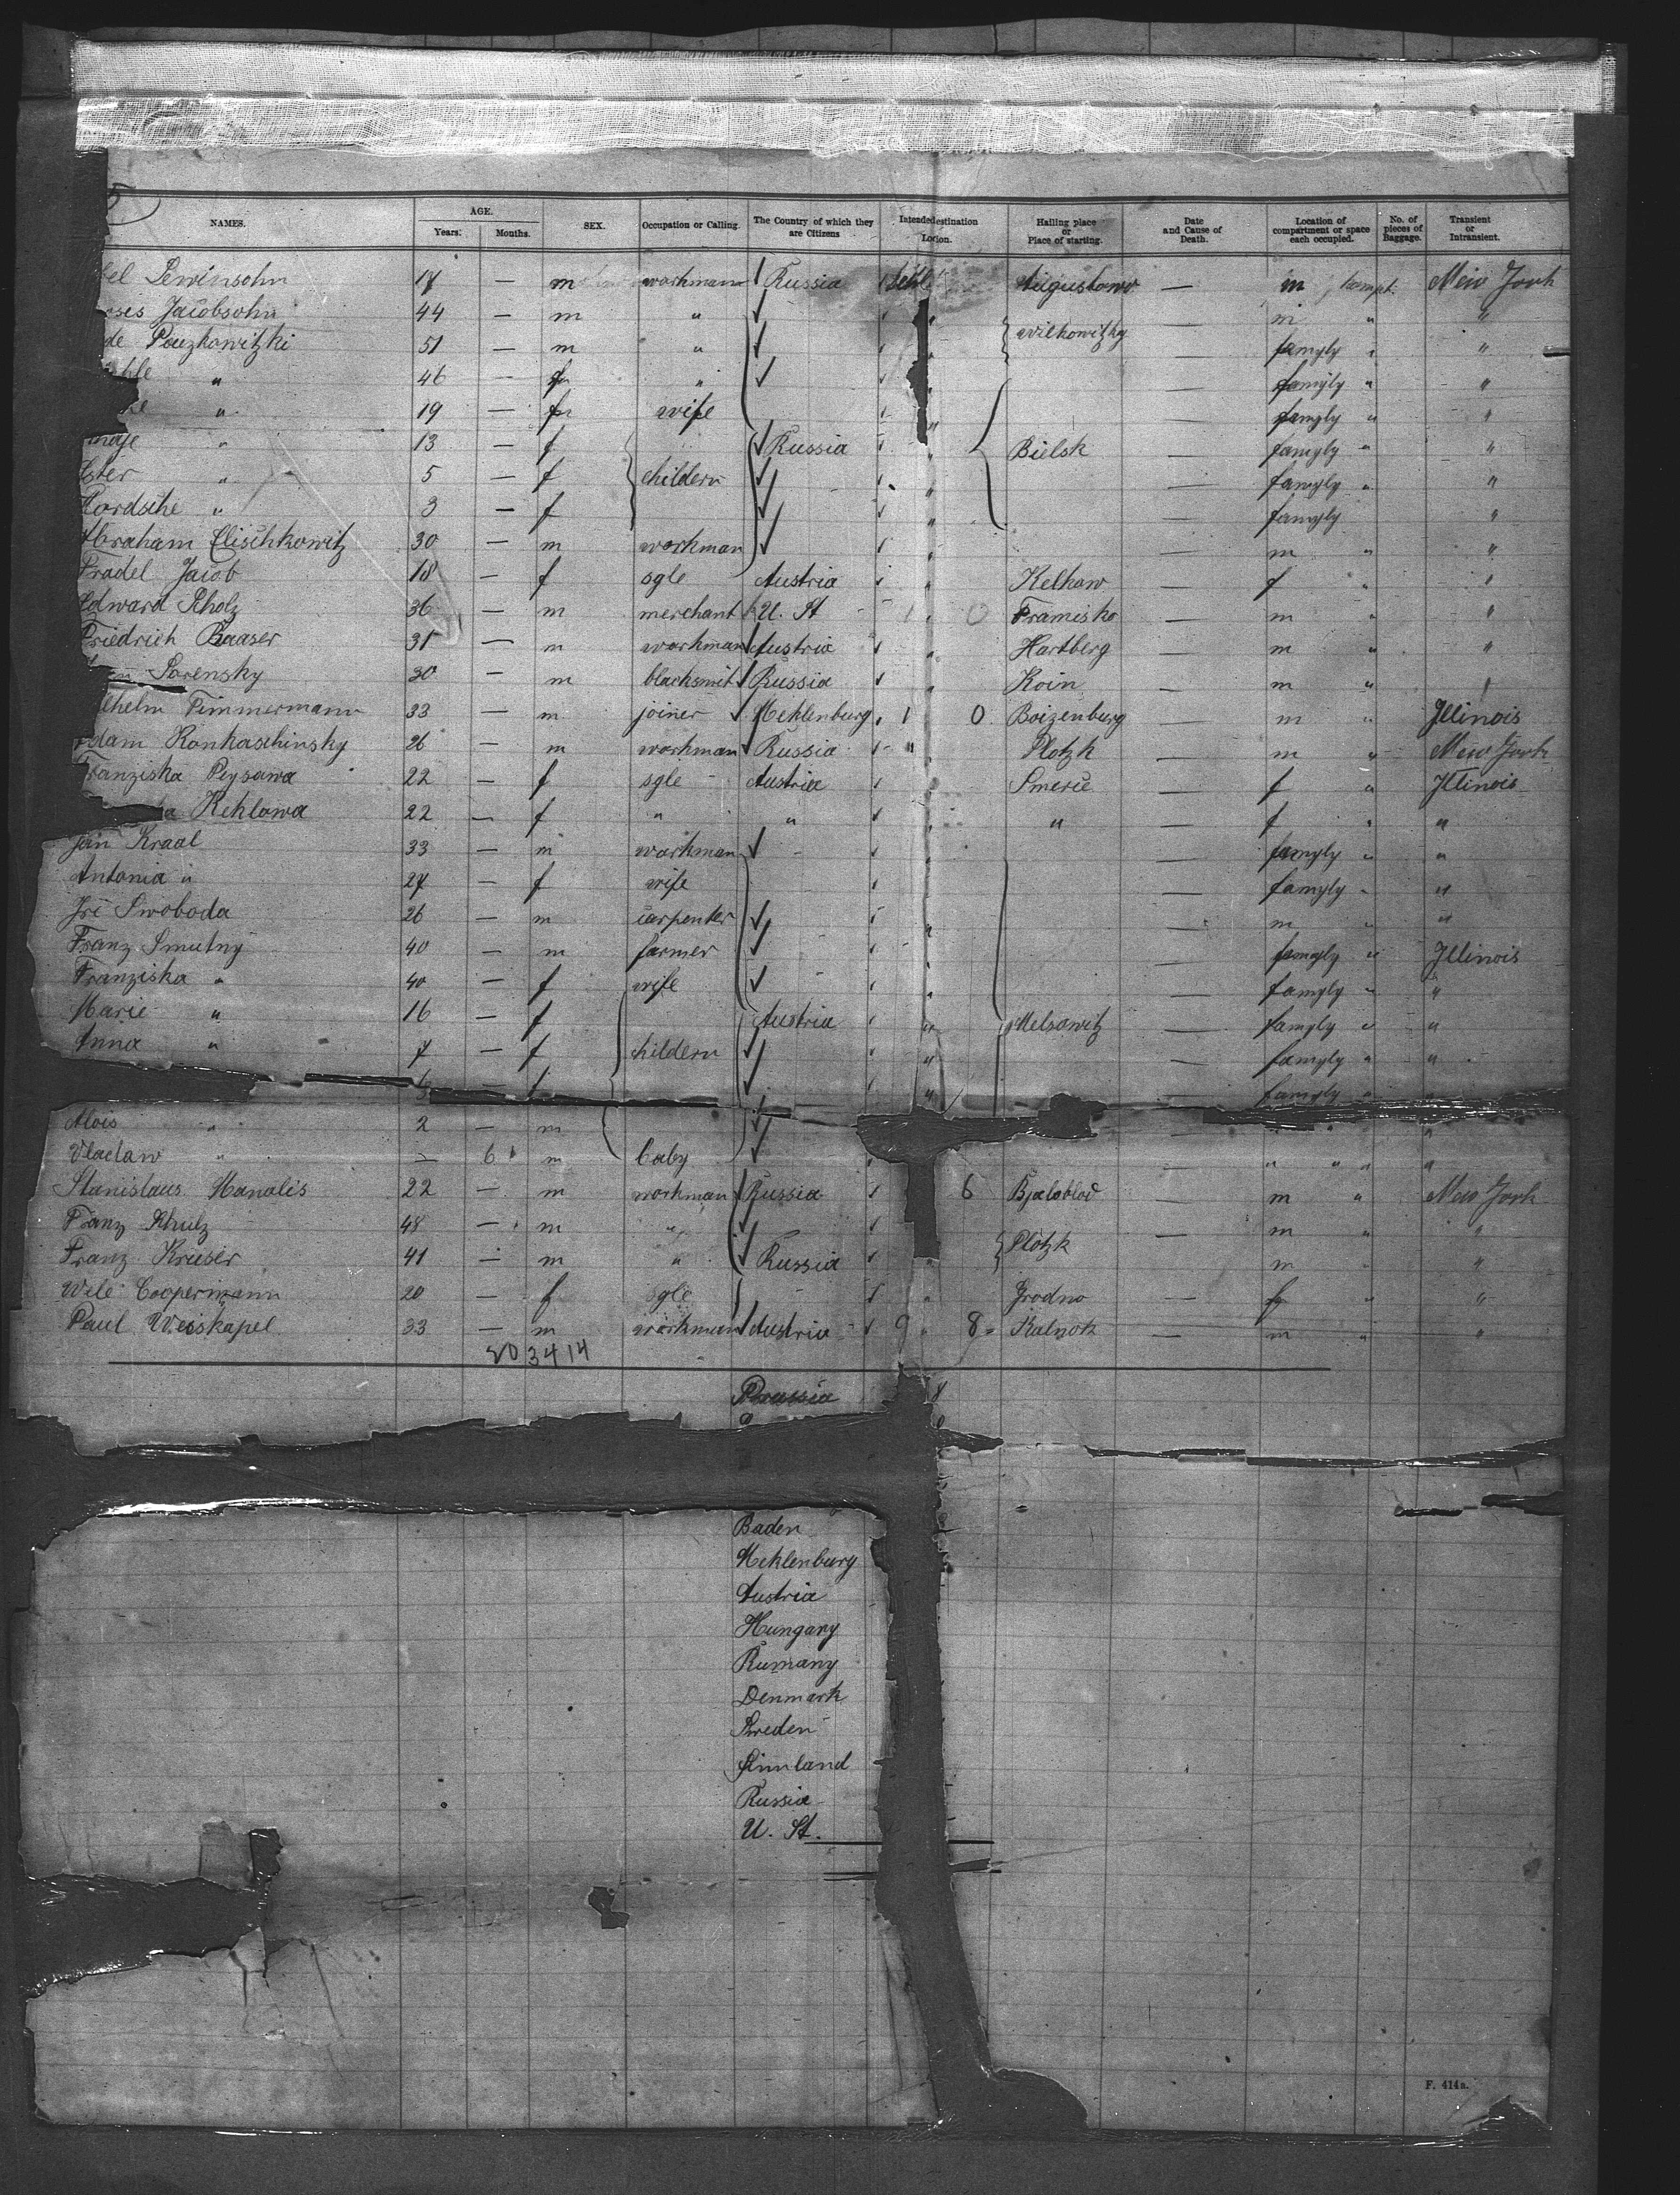 NAMES. AGE. Years. Months. SEX. Occupation or Calling. The Country of which they are Citizens Intended destination Location. Hailing place or Place of starting. Date and Cause of Death. Location of compartment or space each occupied. No. of pieces of Baggage. Transient or Intransient.
Lewinsohn 17 — m workmann Russia Augustowo — m kompt. New York
Jacobsohn 44 — m " wilkowitzky — m " "
51 — m " — famyly " "
" 46 — " — famyly " "
" 19 — wife — famyly " "
" 13 — f Russia Bielsk — famyly " "
Ester " 5 — f childern " — famyly " "
Mordsche " 3 — f " — famyly "
Abraham Elischkowitz 30 — m workman — m " "
Fradel Jacob 18 — f sgle Austria Kelhaw — f " "
Edward Scholz 36 — m merchant U. St 0 Framisko — m " "
Friedrich Baaser 31 — m workman Austria " Hartberg — m " "
Sorensky 30 — m blacksmit Russia " Koin — m " "
Wilhelm Timmermann 33 — m joiner Meklenburg 1 0 Boizenburg — m " Illinois
Adam Konkaschinsky 26 — m workman Russia " Plotzk — m " New York
Franziska Peysawa 22 — f sgle Austria Smeric — f " Illinois
Kehlowa 22 — f " " " " — f " "
Jan Kraal 33 — m workman " — famyly " "
Antonia " 27 — f wife — famyly " "
Jri Swoboda 26 — m carpenter " — m " "
Franz Smutny 40 — m farmer " — famyly " Illinois
Franziska " 40 — f wife " — famyly " "
Marie " 16 — f Austria " Melsowitz — famyly " "
Anna " 7 — f childern " — famyly " "
— f " — famyly " "
Alois " 2 — m — " " "
Vlaclaw " — 6 m baby — " " " "
Stanislaus Manalis 22 — m workman Russia 6 Bjaloblod — m " New York
Franz Schulz 48 — m " — m " "
Franz Kruser 41 — m " Russia " Plotzk m " "
Wele Coopermann 20 — f sgle " Grodno — " "
Paul Weiskapel 33 — m workman Austria 9 " 8 = Kalnok — m " "
20 34 14
Prussia
Baden
Meklenburg
Austria
Hungary
Rumany
Denmark
Sweden
Finnland
Russia
U. St.
F. 414a.